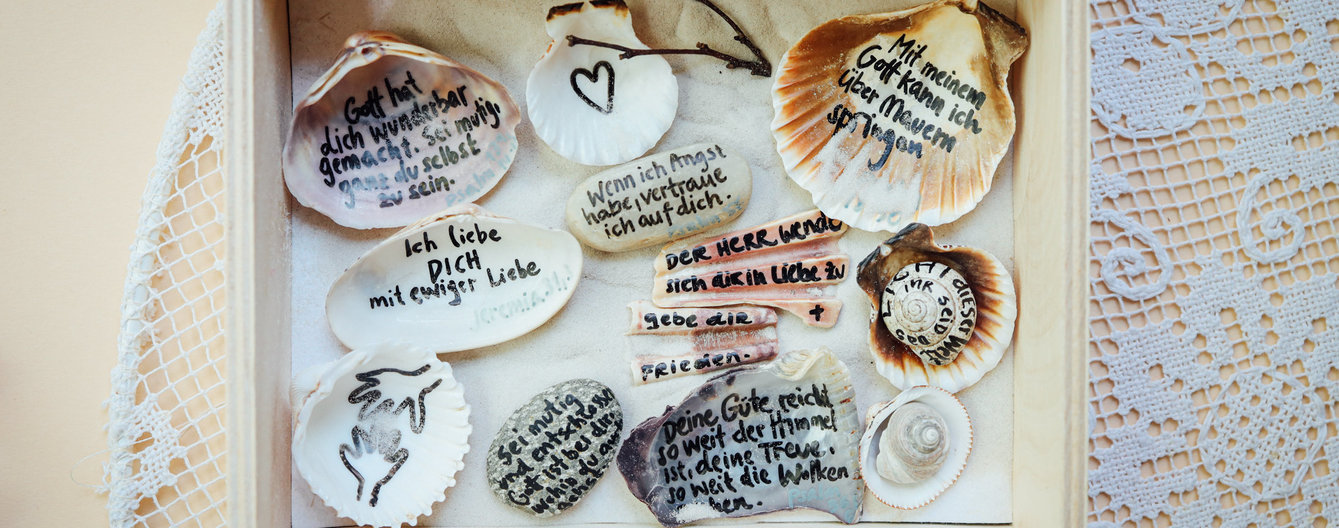 Gott hat
dich wunderbar
gemacht. Sei mutig,
ganz du selbst
zu sein.
Mit meinem
Gott kann ich
über Mauern
springen
Wenn ich Angst
habe, vertraue
ich auf dich.
Ich liebe
DICH
mit ewiger Liebe
Jeremia
DER HERR wende
sich dir in Liebe zu
+
gebe dir
Frieden.
dieser
ihr seid
das
Welt
Sei mutig
und entschlossen
Gott ist bei dir
wohin du
Deine Güte reicht
so weit der Himmel
ist, deine Treue,
so weit die Wolken